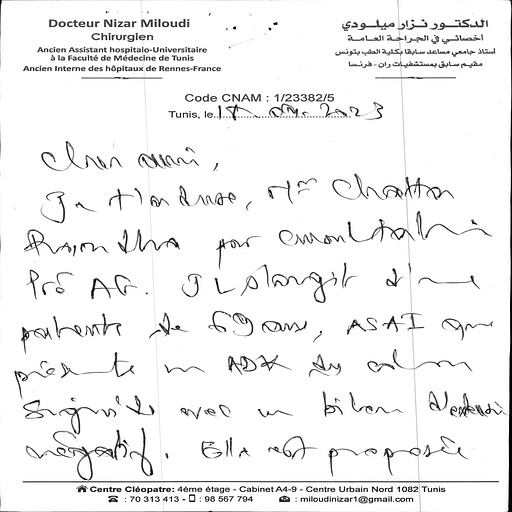 Docteur Nizar Miloudi
Chirurgien
Ancien Assistant hospitalo-Universitaire
à la Faculté de Médecine de Tunis
Ancien Interne des hôpitaux de Rennes-France
الدكتور نزار ميلودي
أخصائي في الجراحة العامة
أستاذ جامعي مساعد سابقا بكلية الطب بتونس
مقيم سابق بمستشفيات ران - فرنسا
Code CNAM : 1/23382/5
Tunis, le 2023
Cher ami,
Je t'adresse, Mme
par consultation
Pré AG. Il s'agit d'une
patiente de 69 ans, ASAI qui
présente un ADK du colon
Sigmoïde avec un bilan d'extension
négatif. Elle est proposée
Centre Cléopatre: 4ème étage - Cabinet A4-9 - Centre Urbain Nord 1082 Tunis
: 70 313 413 - : 98 567 794 : miloudinizar1@gmail.com